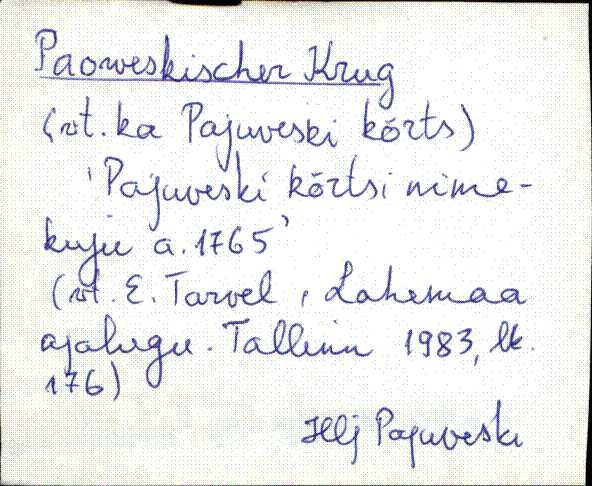 Paorweskischer Krug
(vt. ka Pajuveski kõrts)
'Pajuveski kõrtsi nime-
kuju a. 1765'
(vt. E. Tarvel, Lahemaa
ajalugu. Tallinn 1983, lk.
176)
Illj Pajuveski